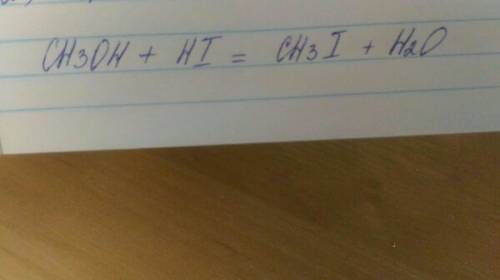 CH3OH + HI = CH3I + H2O